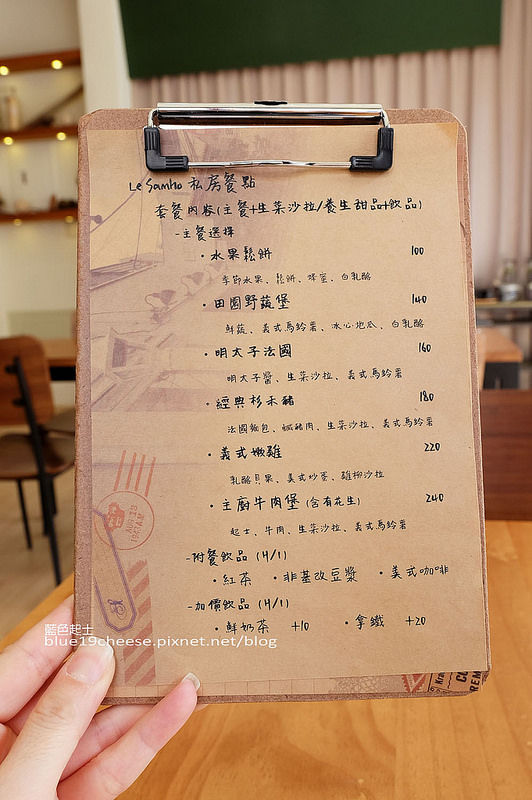 Le Samho 私房餐點
套餐內容(主餐+生菜沙拉/養生甜品+飲品)
-主餐選擇
·水果鬆餅 100
季節水果、鬆餅、蜂蜜、白乳酪
·田園野蔬堡 140
鮮蔬、義式馬鈴薯、冰心地瓜、白乳酪
·明太子法國 160
明太子醬、生菜沙拉、義式馬鈴薯
·經典杉禾豬 180
法國麵包、鹹豬肉、生菜沙拉、義式馬鈴薯
·義式嫩雞 220
乳酪貝果、美式炒蛋、雞柳沙拉
·主廚牛肉堡(含有花生) 240
起士、牛肉、生菜沙拉、義式馬鈴薯
-附餐飲品(H/I)
·紅茶 ·非基改豆漿 ·美式咖啡
-加價飲品(H/I)
·鮮奶茶 +10 ·拿鐵 +20
藍色起士
blue19cheese.pixnet.net/blog